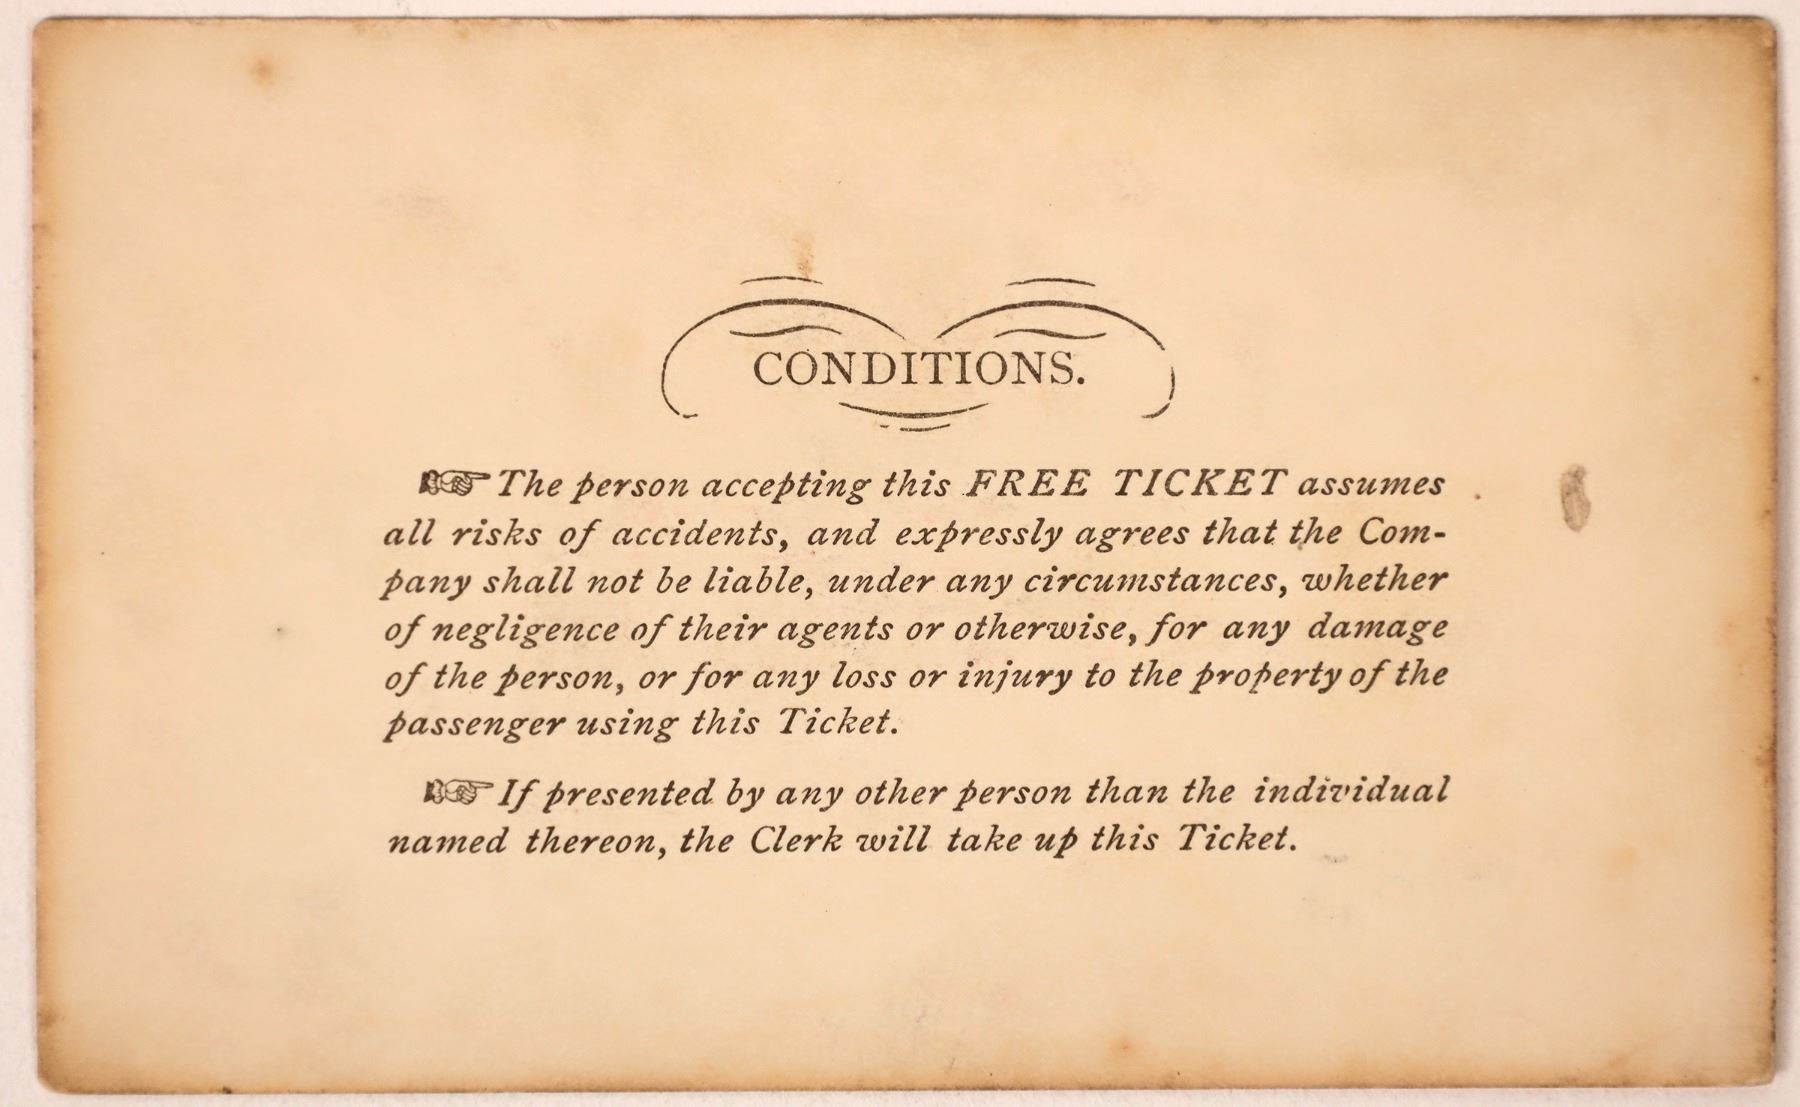 CONDITIONS.
☞ The person accepting this FREE TICKET assumes
all risks of accidents, and expressly agrees that the Com-
pany shall not be liable, under any circumstances, whether
of negligence of their agents or otherwise, for any damage
of the person, or for any loss or injury to the property of the
passenger using this Ticket.
☞ If presented by any other person than the individual
named thereon, the Clerk will take up this Ticket.